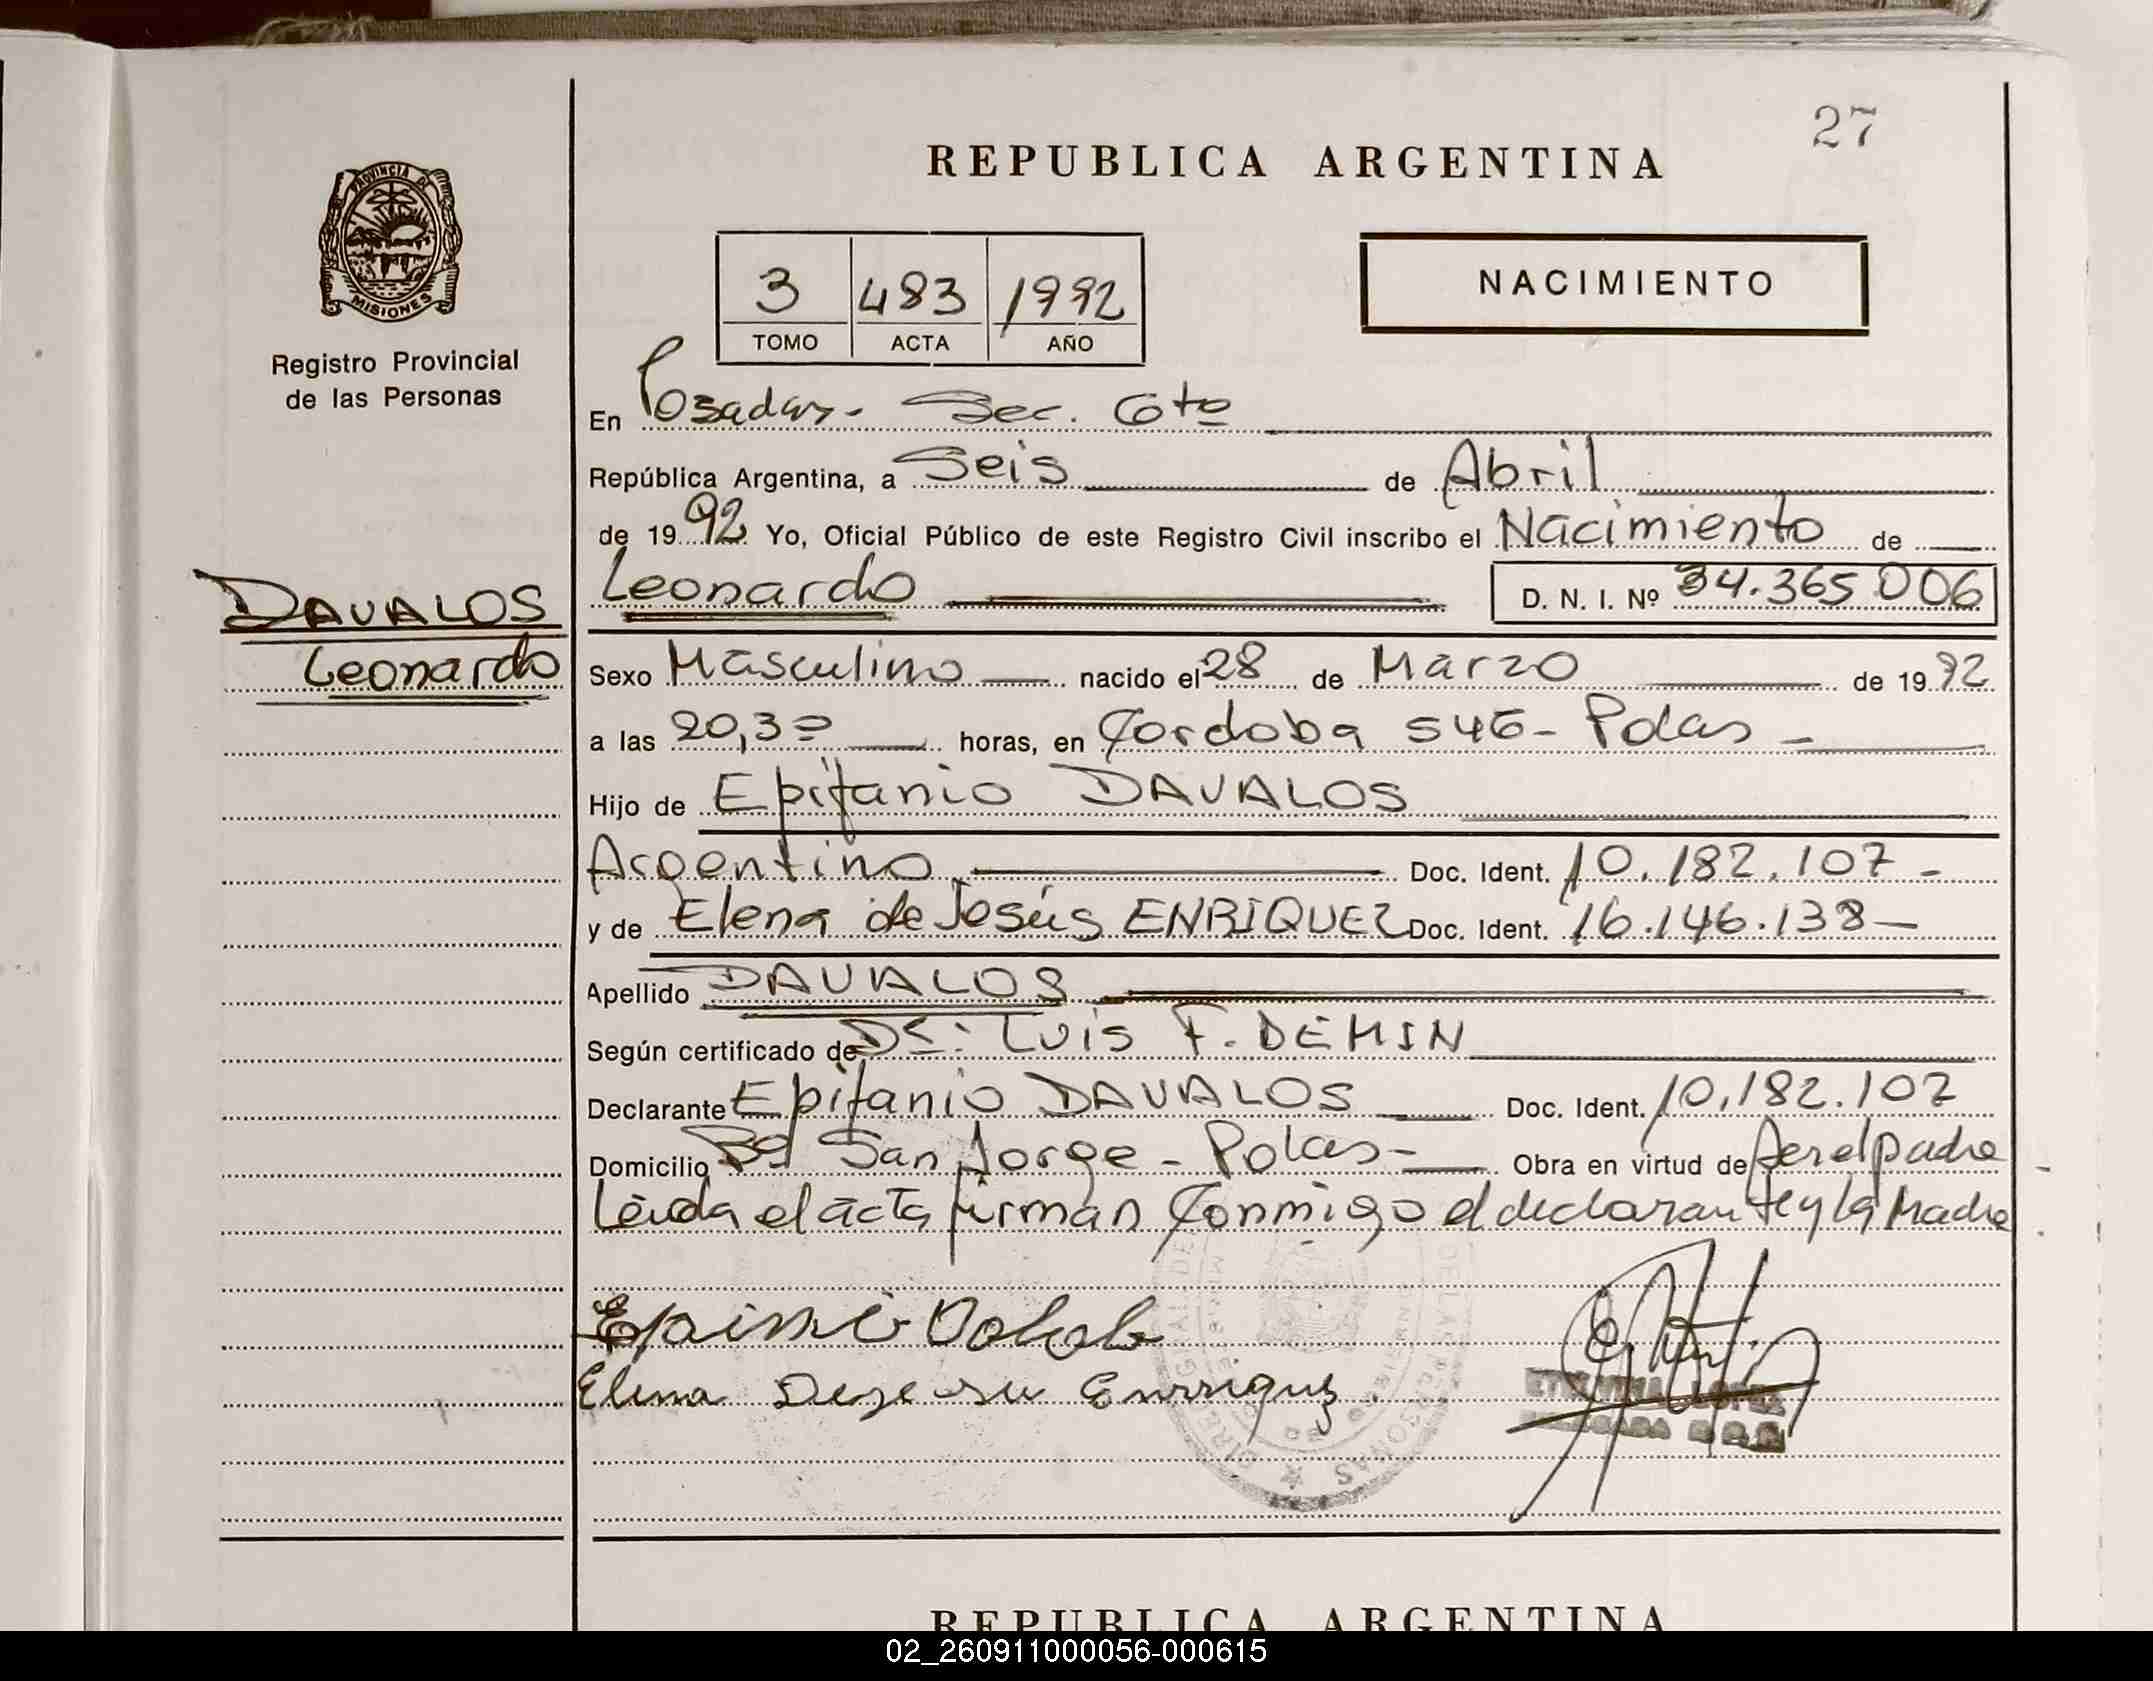 27
REPUBLICA ARGENTINA
PROVINCIA DE
MISIONES
Registro Provincial
de las Personas
3 483 1992
TOMO ACTA AÑO
NACIMIENTO
En Posadas - Sec. 6to
República Argentina, a Seis de Abril
de 1992 Yo, Oficial Público de este Registro Civil inscribo el Nacimiento de
DAVALOS
Leonardo
Leonardo D. N. I. Nº 34.365.006
Sexo Masculino nacido el 28 de Marzo de 1992
a las 20,30 horas, en Cordoba 545 - Pdas -
Hijo de Epifanio DAVALOS
Argentino Doc. Ident. 10.182.107 -
y de Elena de Jesús ENRIQUEZ Doc. Ident. 16.146.138 -
Apellido DAVALOS
Según certificado de Dr: Luis F. DEMIN
Declarante Epifanio DAVALOS Doc. Ident. 10.182.107
Domicilio Bº San Jorge - Pdas - Obra en virtud de ser el padre
Leida el acta firman conmigo el declarante y la Madre
Elena Deje su Enrriquz
LOPEZ
REPUBLICA ARGENTINA
02_260911000056-000615